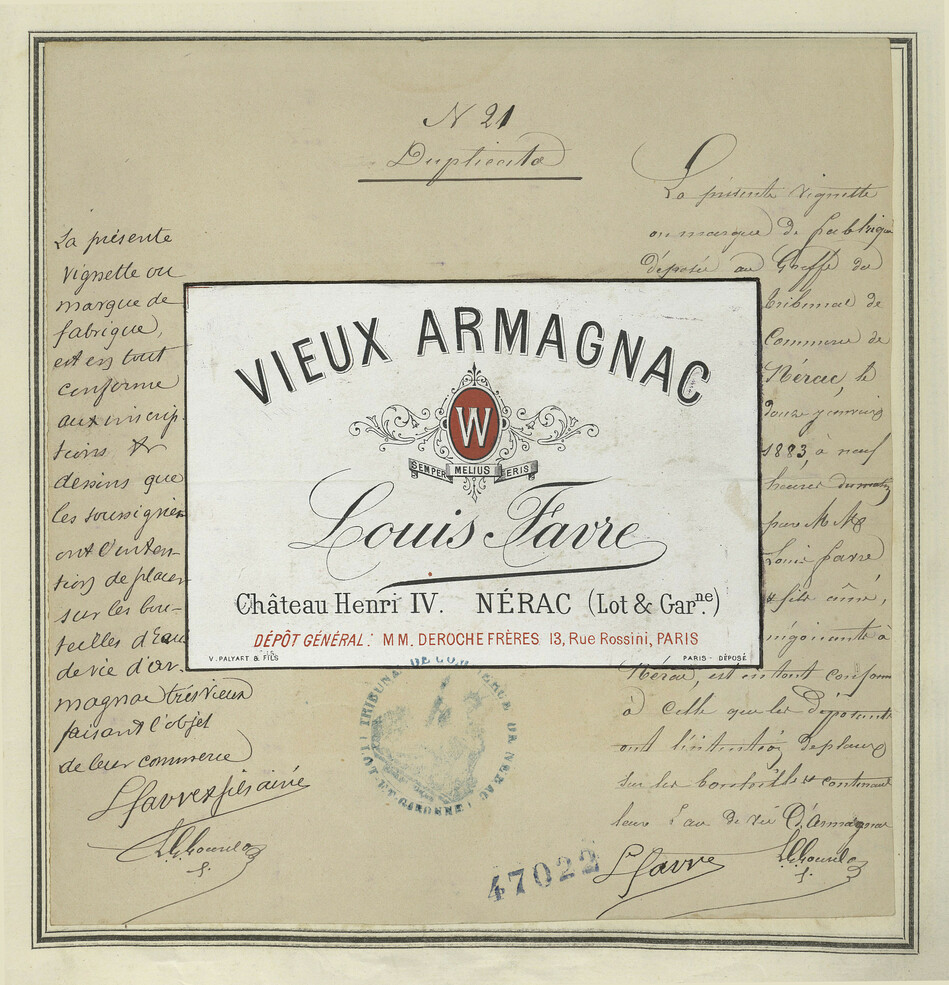 N 21
Duplicata
La présente
vignette ou
marque de
fabrique,
est en tout
conforme
aux inscrip-
tions &
dessins que
les soussignés
ont l'inten-
tion de placer
sur les bou-
teilles d'Eau
de vie d'ar-
magnac très vieux
faisant l'objet
de leur commerce
L Favre & fils ainé
VIEUX ARMAGNAC
W
SEMPER MELIUS ERIS
Louis Favre
Château Henri IV. NÉRAC (Lot & Garne.)
DÉPÔT GÉNÉRAL: MM. DEROCHE FRÈRES 13, Rue Rossini, PARIS
V. PALYART & FILS
PARIS - DÉPOSÉ
La présente vignette
ou marque de fabrique
déposée au Greffe du
tribunal de
Commerce de
Nérac, le
douze janvier
1883, à neuf
heures du matin
par MM
Louis Favre
& fils ainé,
négociants à
Nérac, est en tout conforme
à celle que les déposants
ont l'intention de placer
sur les bouteilles contenant
leur Eau de vie d'Armagnac
L Favre
TRIBUNAL DE COMMERCE DE NERAC (LOT ET GARONNE)
47022